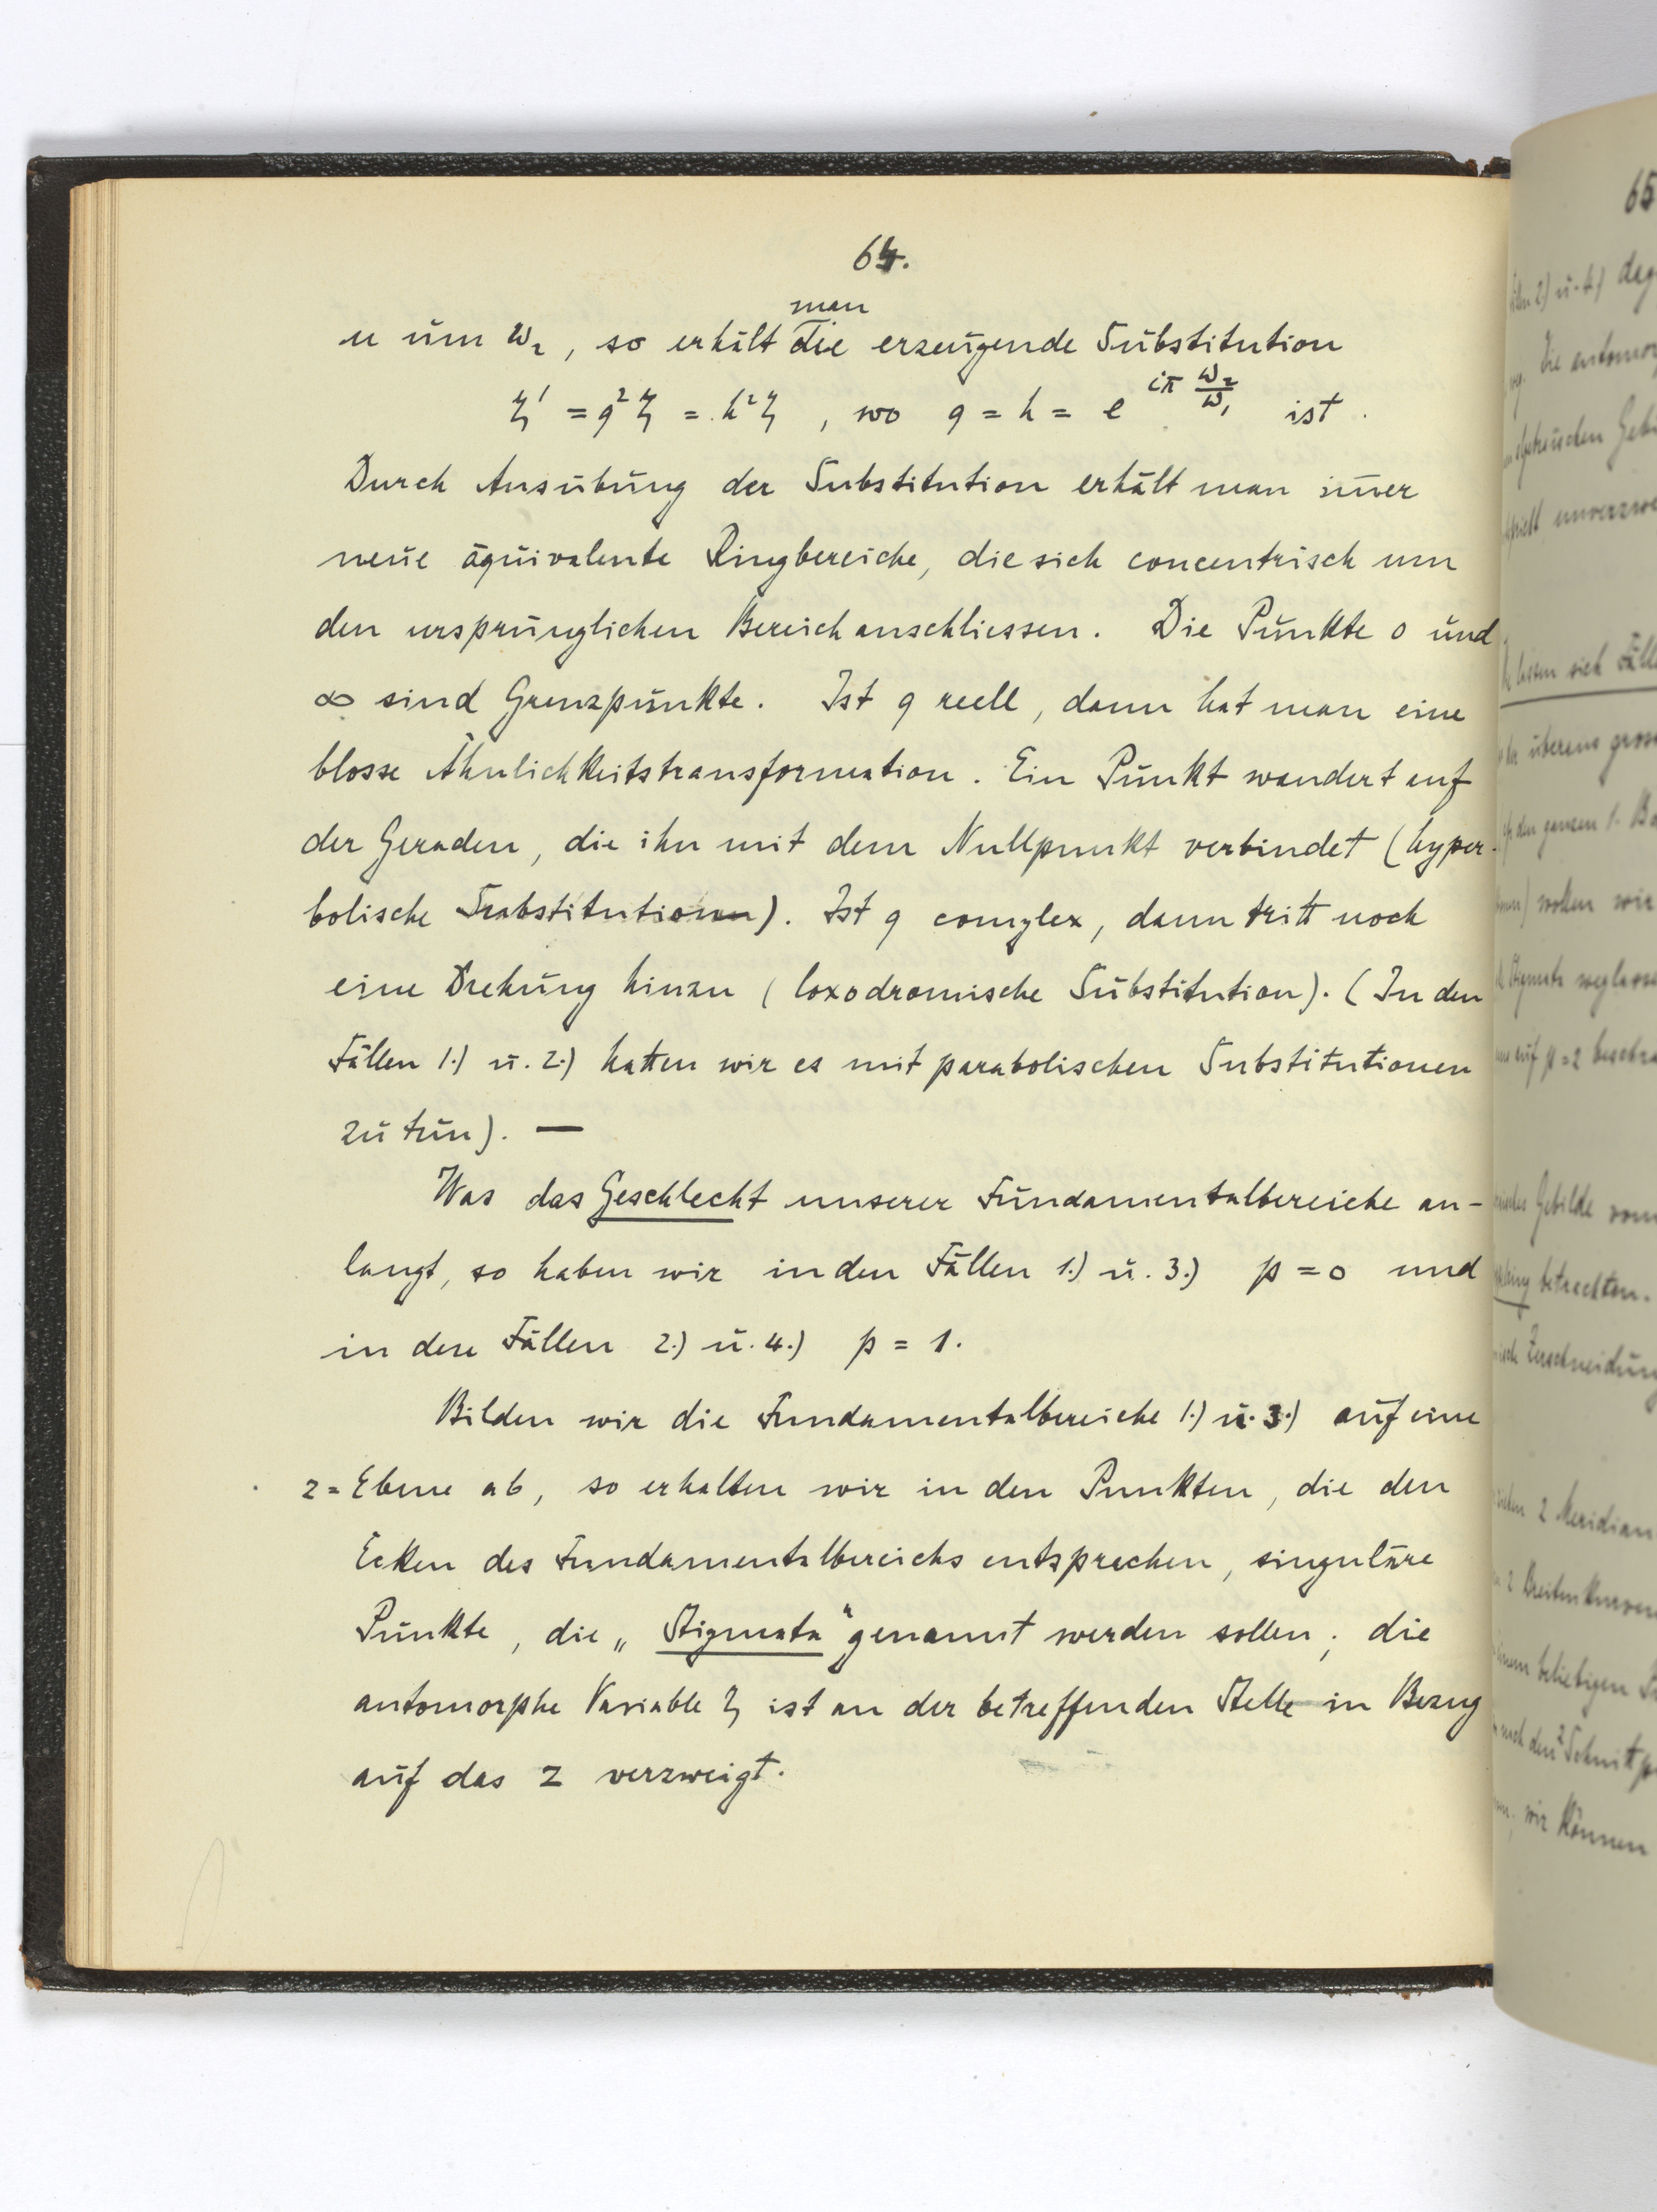 64.
man
u um ω₂, so erhält die erzeugende Substitution
ζ' = q²ζ = h²ζ , wo q = h = e^{iπ ω₂/ω₁} ist.
Durch Ausübung der Substitution erhält man im̄er
neue äquivalente Ringbereiche, die sich concentrisch um
den ursprünglichen Bereich anschliessen. Die Punkte 0 und
∞ sind Grenzpunkte. Ist q reell, dann hat man eine
blosse Ähnlichkeitstransformation. Ein Punkt wandert auf
der Geraden, die ihn mit dem Nullpunkt verbindet (hyper-
bolische Substitution). Ist q complex, dann tritt noch
eine Drehung hinzu (loxodromische Substitution). (In den
Fällen 1.) u. 2.) hatten wir es mit parabolischen Substitutionen
zu tun). —
Was das Geschlecht unserer Fundamentalbereiche an-
langt, so haben wir in den Fällen 1.) u. 3.) p = 0 und
in den Fällen 2.) u. 4.) p = 1.
Bilden wir die Fundamentalbereiche 1.) u. 3.) auf eine
z=Ebene ab, so erhalten wir in den Punkten, die den
Ecken des Fundamentalbereichs entsprechen, singuläre
Punkte, die „Stigmata" genannt werden sollen; die
automorphe Variable ζ ist an der betreffenden Stelle in Bezug
auf das z verzweigt.
65
2) u. 4.)
die automor
Gebi
unverzwe
lassen sich Fälle
überaus gros
den ganzen 1.
wollen wir
auf p = 2
Gebilde vom
betrachten.
Zerschneidung
2 Meridian
2 Breitenkurven
beliebigen
nach den 2 Schnittp
wir können